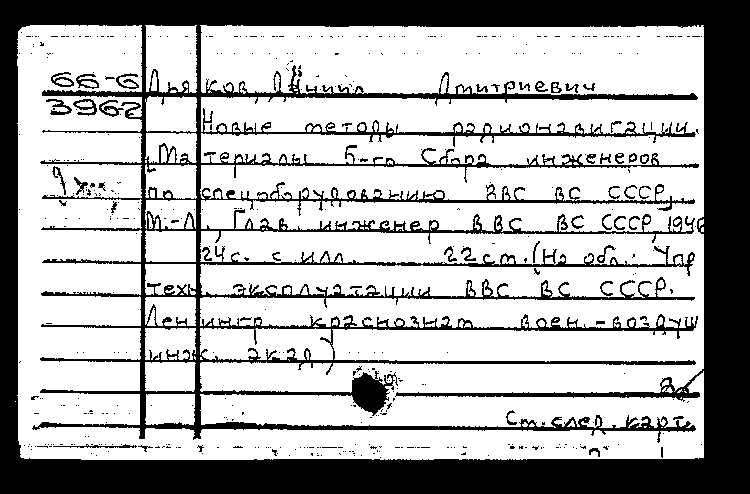 66-6 Дьяков, Даниил Дмитриевич
3962
Новые методы радионавигации.
[Материалы 5-го Сбора инженеров
по спецоборудованию ВВС ВС СССР].
М.-Л., Глав. инженер ВВС ВС СССР, 1946
24 с. с илл. 22 см. (На обл.: Упр
техн. эксплуатации ВВС ВС СССР.
Ленингр. краснознам воен.-воздуш
инж. акад)
См. след. карт.